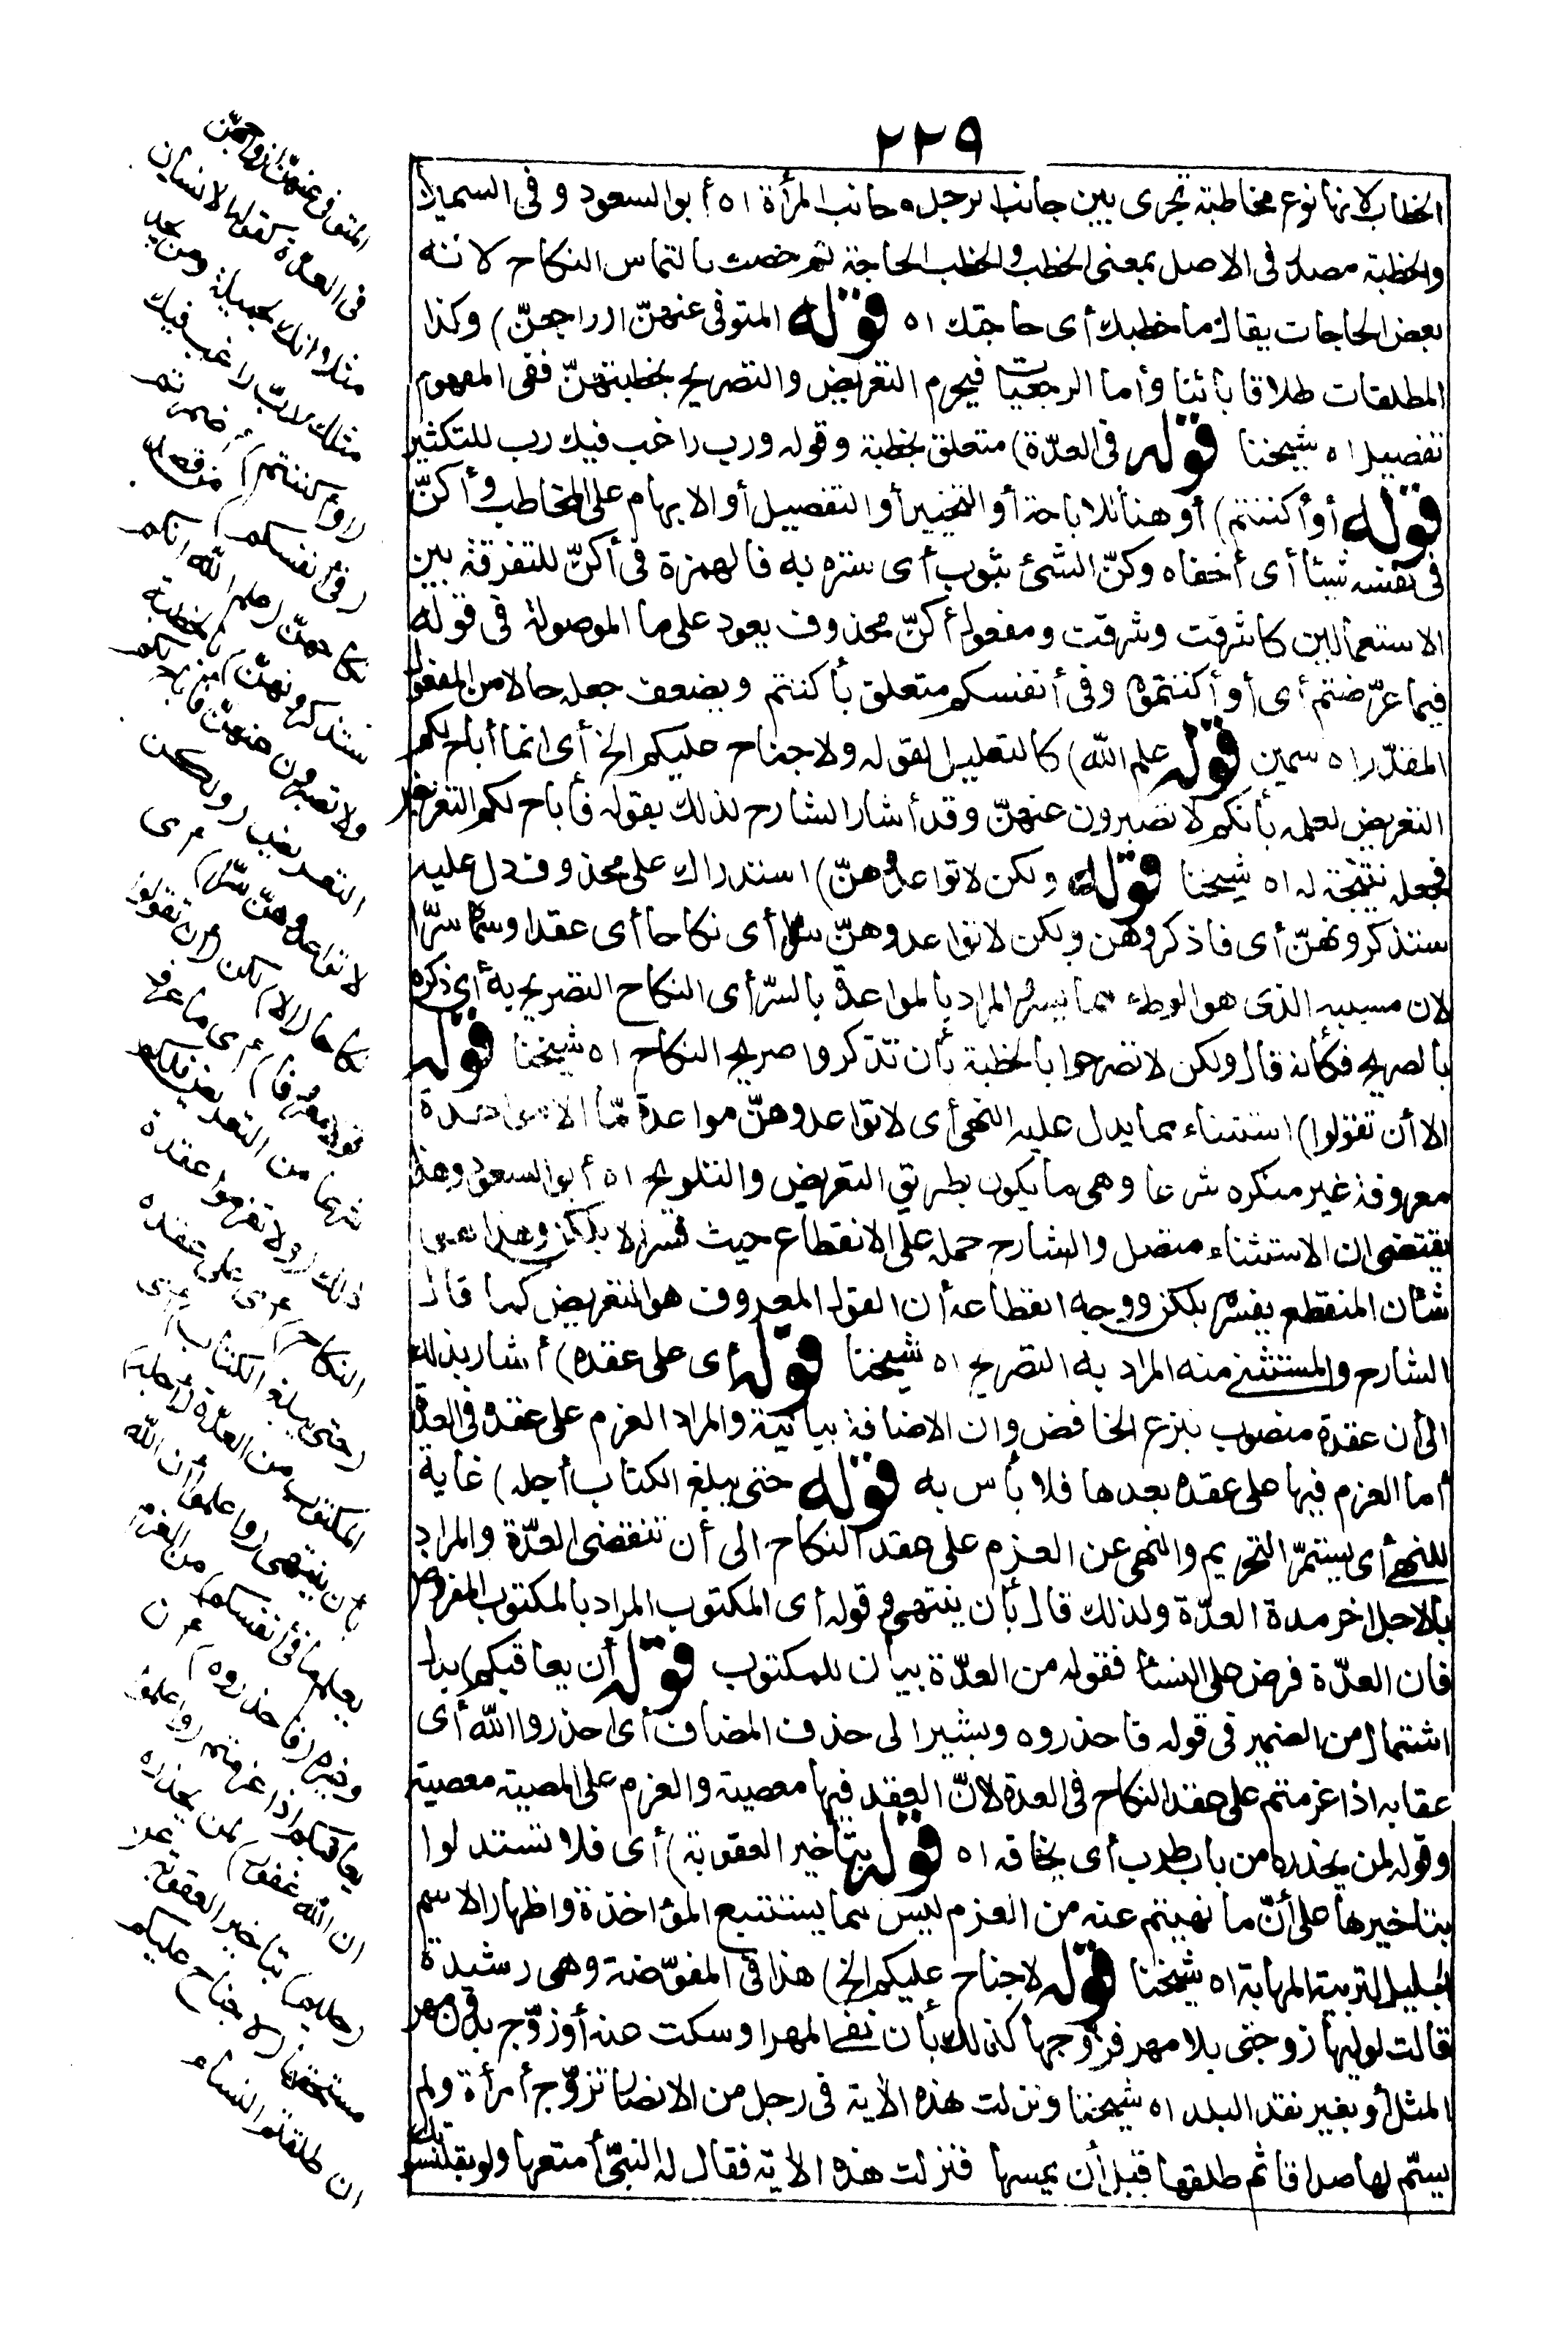 ٢٢٩
الخطاب لانها نوع مخاطبة تجرى بين جانب الرجل وجانب المرأة اه أبو السعود وفى السمين
والخطبة مصدر فى الاصل بمعنى الخطب والخطب الحاجة ثم خصت بالتماس النكاح لانه
بعض الحاجات يقال ما خطبك أى حاجتك اه قوله المتوفى عنهنّ ازواجهنّ) وكذا
المطلقات طلاقا بائنا وأما الرجعيات فيحرم التعريض والتصريح بخطبتهنّ ففى المفهوم
تفصيل اه شيخنا قوله فى العدّة) متعلق بخطبة وقوله ورب راغب فيك رب للتكثير
قوله أو أكننتم) أو هنا للاباحة أو التخيير أو التفصيل أو الابهام على المخاطب وأكنّ
فى نفسه شيئا أى أخفاه وكنّ الشئ بثوب أى ستره به فالهمزة فى أكنّ للتفرقة بين
الاستعمالين كاشرقت وشرقت ومفعول أكنّ محذوف يعود على ما الموصولة فى قوله
فيما عرّضتم أى أو أكننتموه وفى أنفسكم متعلق بأكننتم ويضعف جعله حالا من المفعول
المقدّر اه سمين قوله علم الله) كالتعليل لقوله ولا جناح عليكم الخ أى انما أباح لكم
التعريض لعلمه بأنكم لا تصبرون عنهنّ وقد أشار الشارح لذلك بقوله فأباح لكم التعريض
فجعله نتيجة له اه شيخنا قوله ولكن لا تواعدوهنّ) استدراك على محذوف دل عليه
ستذكرونهنّ أى فاذكروهن ولكن لا تواعدوهنّ سرا أى نكاحا أى عقدا وسماه سرّا
لان مسببه الذى هو الوطء مما يسر المراد بالمواعدة بالسرّ أى النكاح التصريح به أى ذكره
بالصريح فكأنه قال ولكن لا تصرحوا بالخطبة بأن تذكروا صريح النكاح اه شيخنا قوله
الا أن تقولوا) استثناء مما يدل عليه النهى أى لا تواعدوهنّ مواعدة مّا الا مواعدة
معروفة غير منكرة شرعا وهى ما يكون بطريق التعريض والتلويح اه أبو السعود وهذا
يقتضى ان الاستثناء متصل والشارح حمله على الانقطاع حيث فسر الا بلكن وهذا هو
شأن المنقطع يفسر بلكن ووجه انقطاعه أن القول المعروف هو التعريض كما قال
الشارح والمستثنى منه المراد به التصريح اه شيخنا قوله أى على عقده) أشار بذلك
الى أن عقدة منصوب بنزع الخافض وان الاضافة بيانية والمراد العزم على عقده فى العدّة
أما العزم فيها على عقده بعدها فلا بأس به قوله حتى يبلغ الكتاب أجله) غاية
للنهى أى يستمرّ التحريم والنهى عن العزم على عقد النكاح الى أن تنقضى العدّة والمراد
بالاجل اخر مدة العدّة ولذلك قال بأن ينتهى وقوله أى المكتوب المراد بالمكتوب المفروض
فان العدّة فرض على النساء فقوله من العدّة بيان للمكتوب قوله أن يعاقبكم) بدل
اشتمال من الضمير فى قوله فاحذروه ويشير الى حذف المضاف أى احذروا الله أى
عقابه اذا عزمتم على عقد النكاح فى العدة لانّ العقد فيها معصية والعزم على المعصية معصية
وقوله لمن يحذره من باب طرب أى يخافه اه قوله بتأخير العقوبة) أى فلا تستدلوا
بتاخيرها على أنّ ما نهيتم عنه من العزم ليس مما يستتبع المؤاخذة واظهار الاسم
الجليل لتربية المهابة اه شيخنا قوله لا جناح عليكم الخ) هذا فى المفوّضة وهى رشيدة
قالت لوليها زوجنى بلا مهر فزوجها كذلك بأن نفى المهر او سكت عنه أو زوّج بدون مهر
المثل أو بغير نقد البلد اه شيخنا ونزلت هذه الاية فى رجل من الانصار تزوّج أمرأة ولم
يسمّ لها صداقا ثم طلقها قبل أن يمسها فنزلت هذه الاية فقال له النبىّ أمتعها ولو بقلنسوتك
المتوفى عنهنّ ازواجهنّ
فى العدّة كقول الانسان
مثلا انك لجميلة ومن يجد
مثلك ورُبّ راغب فيك
(أو أكننتم) أضمرتم
(فى أنفسكم) من قصد
نكاحهنّ (علم الله انكم
ستذكرونهنّ) بالخطبة
ولا تصبرون عنهنّ فأباح لكم
التعريض (ولكن
لا تواعدوهنّ سرّا) أى
نكاحا (الا) لكن (أن تقولوا
قولا معروفا) أى ما عرف
شرعا من التعريض فلكم
ذلك (ولا تعزموا عقدة
النكاح) أى على عقده
(حتى يبلغ الكتاب) أى
المكتوب من العدّة (أجله)
بأن ينتهى (واعلموا أن الله
يعلم ما فى أنفسكم) من العزم
وغيره (فاحذروه) أن
يعاقبكم اذا عزمتم (واعلموا
ان الله غفور) لمن يحذره
(حليم) بتأخير العقوبة عن
مستحقها (لا جناح عليكم
ان طلقتم النساء